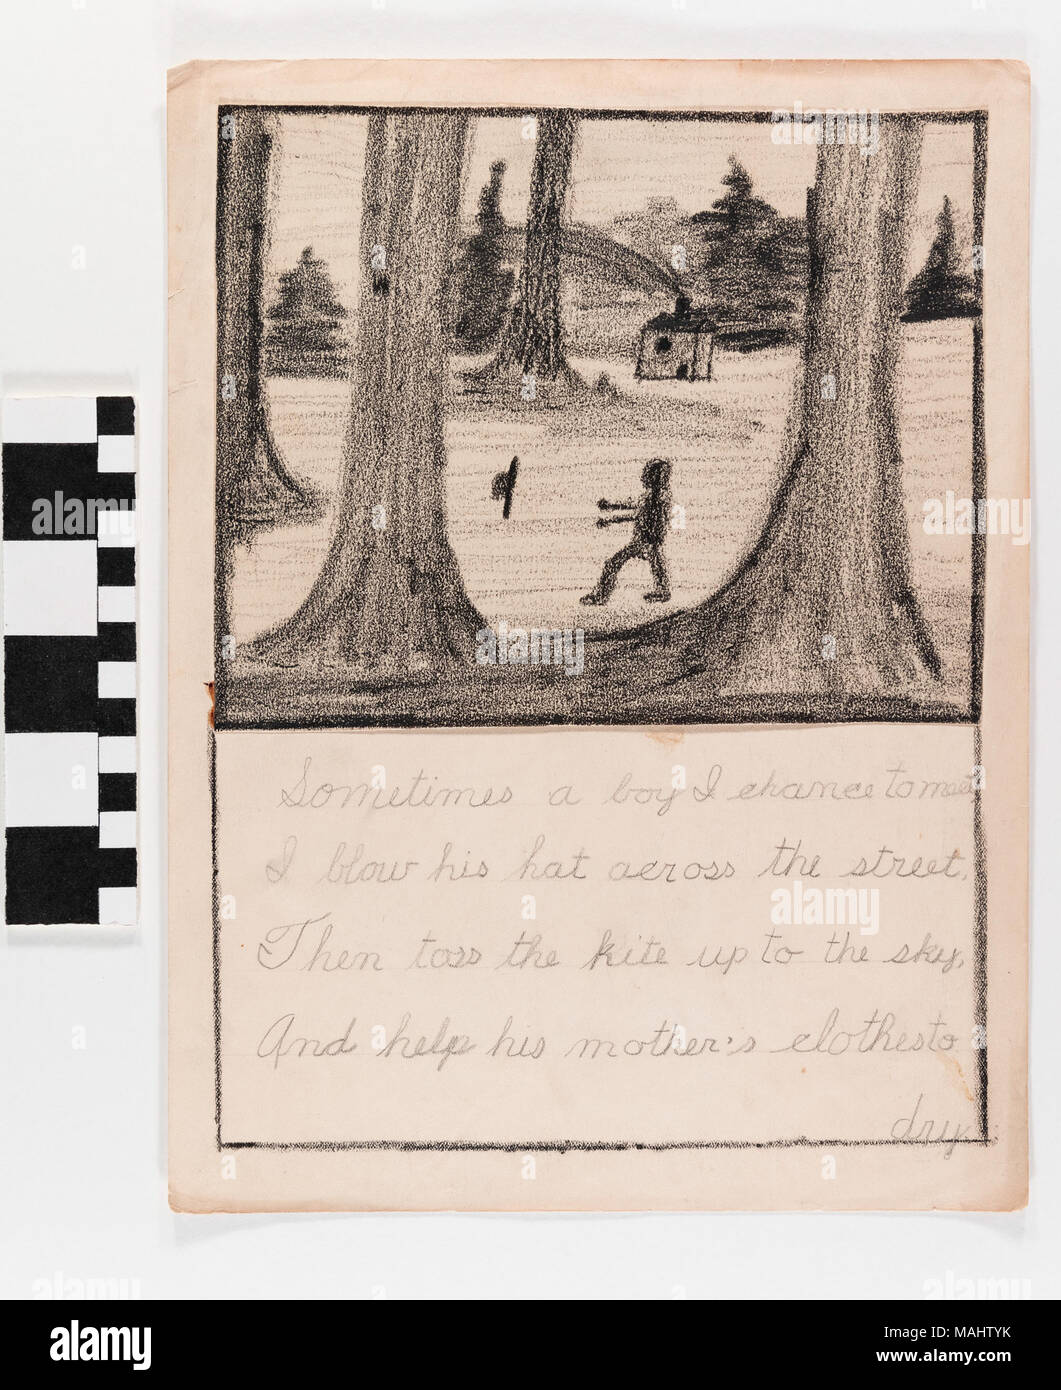 Sometimes a boy I chance to meet
I blow his hat across the street,
Then toss the kite up to the sky,
And help his mother's clothes to
dry.
alamy
Image ID: MAHTYK
www.alamy.com